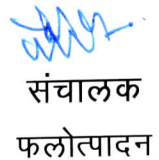 संचालक
फलोत्पादन